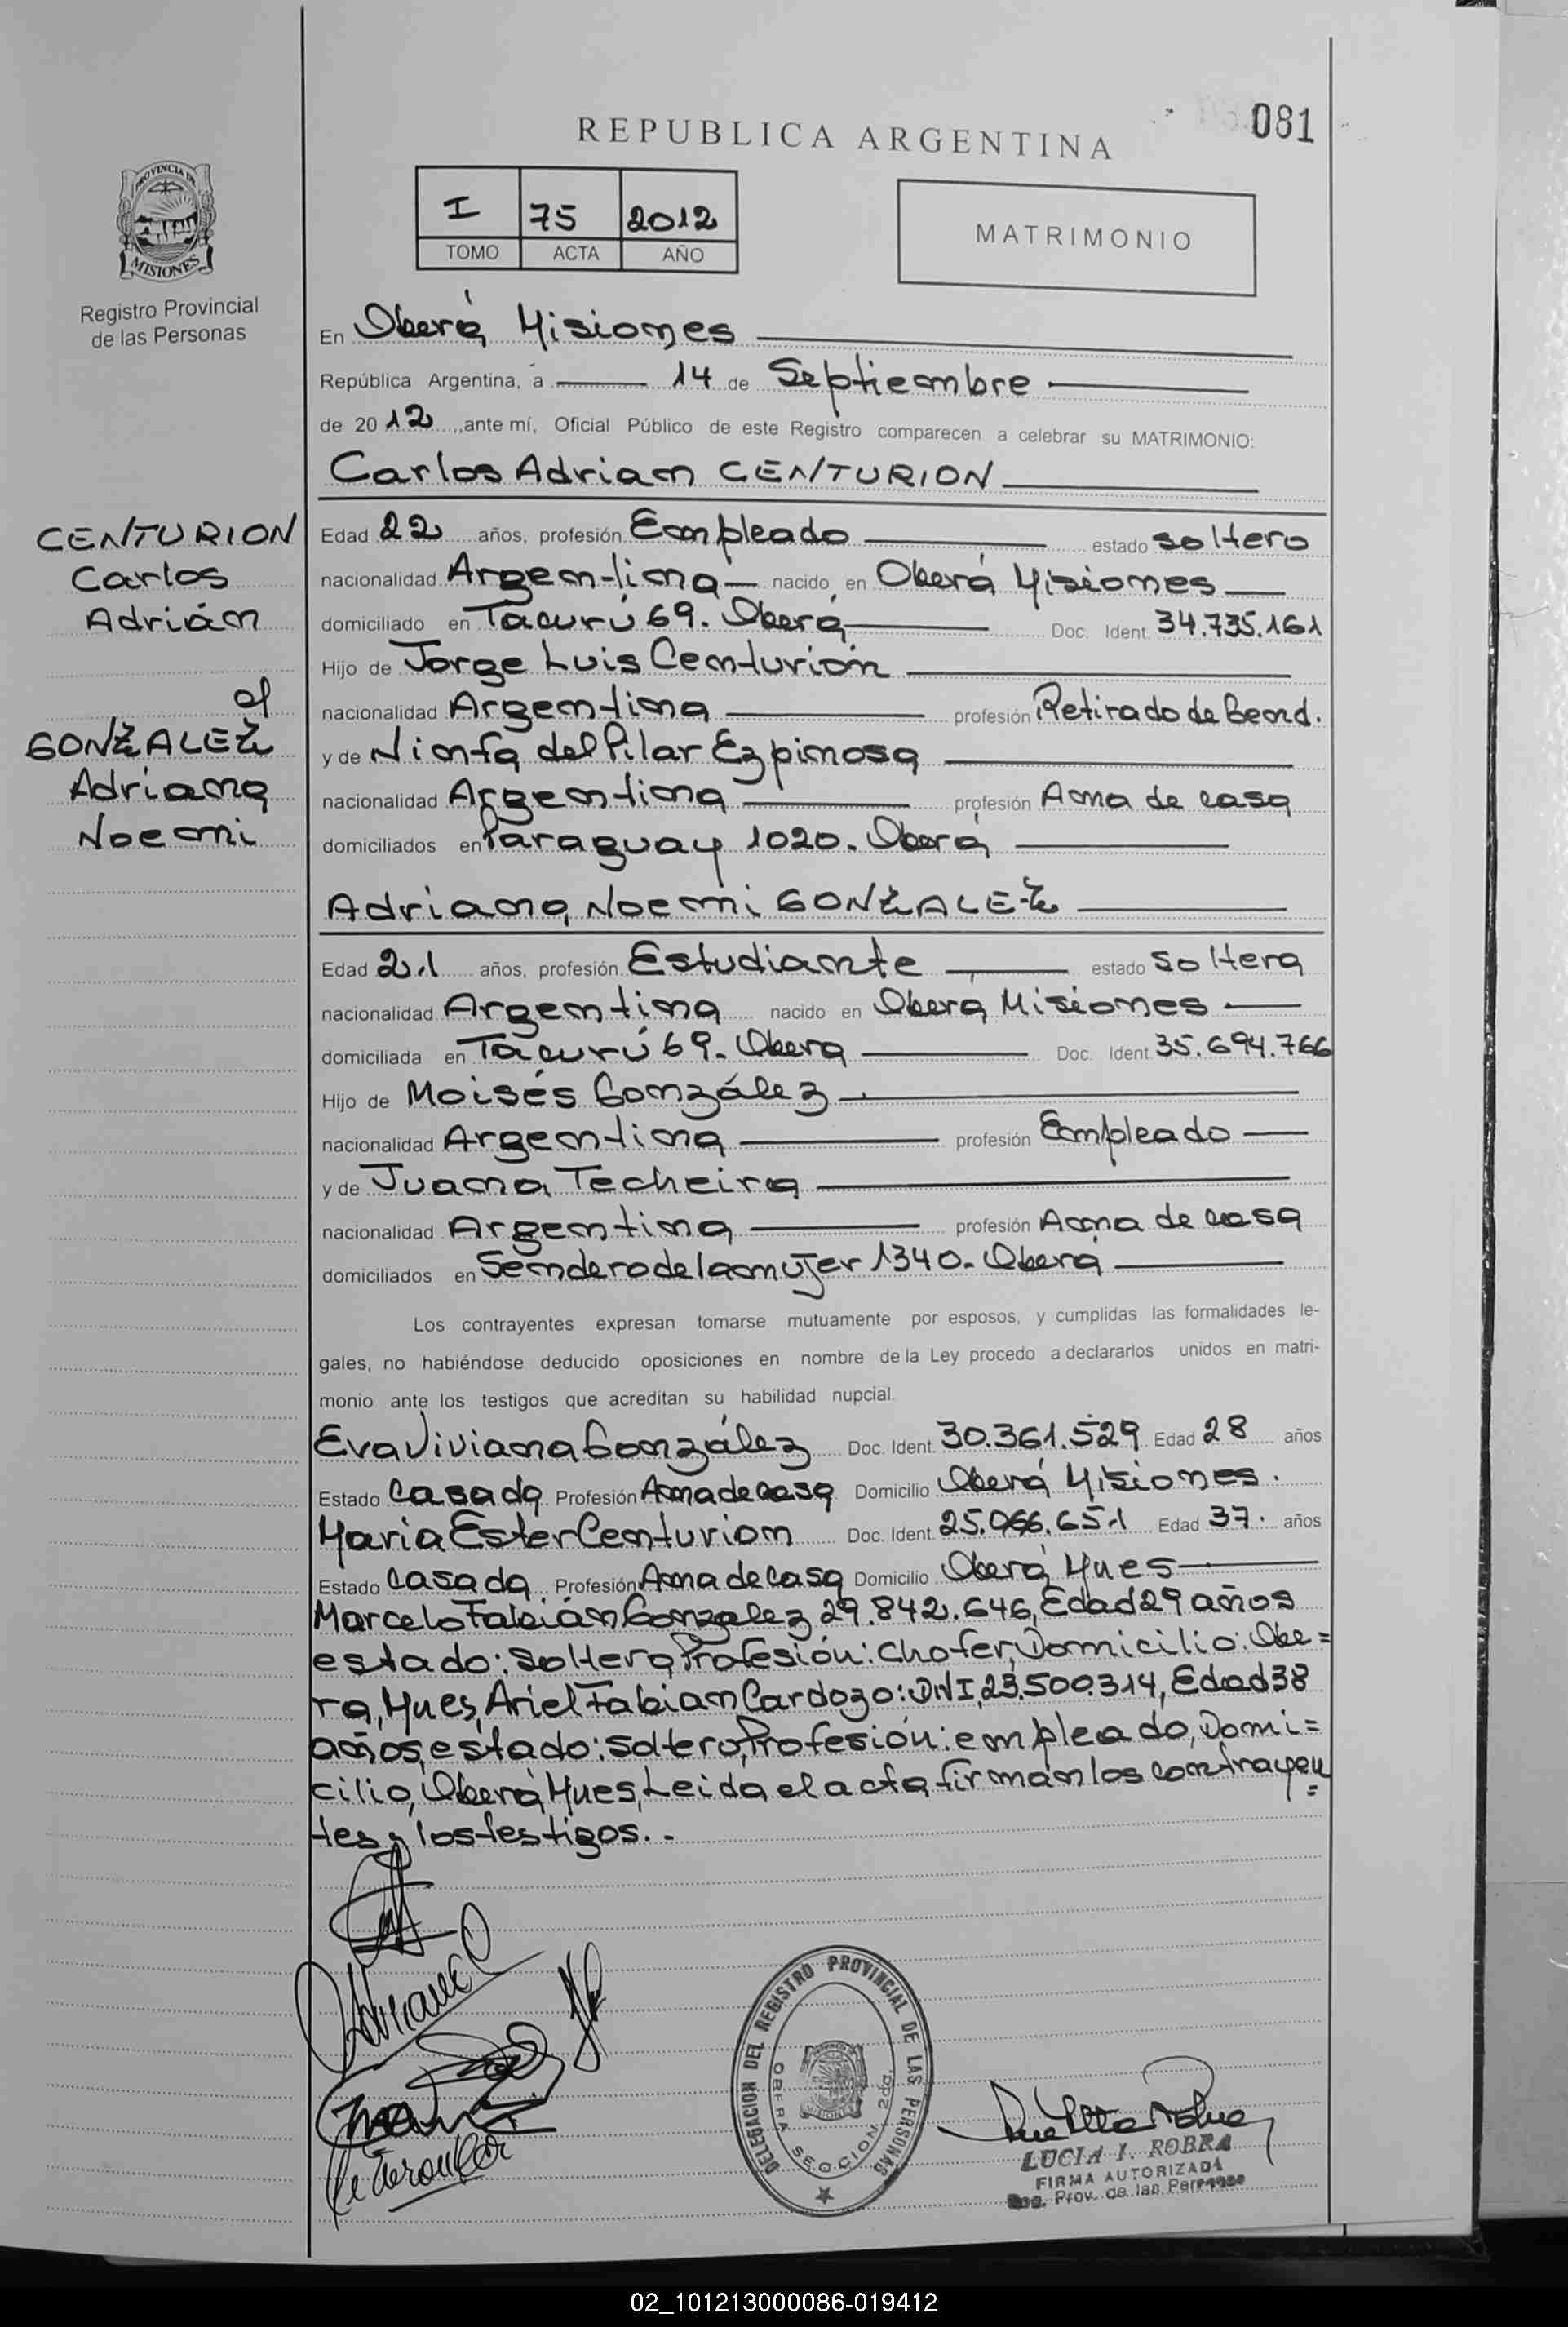 081
REPUBLICA ARGENTINA
PROVINCIA DE
MISIONES
Registro Provincial
de las Personas
I 75 2012
TOMO ACTA AÑO
MATRIMONIO
En Oberá Misiones
República Argentina, a 14 de Septiembre
de 2012, ante mí, Oficial Público de este Registro comparecen a celebrar su MATRIMONIO:
Carlos Adrian CENTURION
CENTURION
Carlos
Adrián
GONZALEZ
Adriana
Noemi
Edad 22 años, profesión Empleado estado soltero
nacionalidad Argentina nacido en Oberá Misiones
domiciliado en Tacurú 69. Oberá Doc. Ident. 34.735.161
Hijo de Jorge Luis Centurión
nacionalidad Argentina profesión Retirado de Gend.
y de Ninfa del Pilar Ezpinosa
nacionalidad Argentina profesión Ama de casa
domiciliados en Paraguay 1020. Oberá
Adriana Noemi GONZALEZ
Edad 21 años, profesión Estudiante estado soltera
nacionalidad Argentina nacido en Oberá Misiones
domiciliada en Tacurú 69. Obera Doc. Ident. 35.694.766
Hijo de Moisés González
nacionalidad Argentina profesión Empleado
y de Juana Techeira
nacionalidad Argentina profesión Ama de casa
domiciliados en Sendero de la mujer 1340. Oberá
Los contrayentes expresan tomarse mutuamente por esposos, y cumplidas las formalidades le-
gales, no habiéndose deducido oposiciones en nombre de la Ley procedo a declararlos unidos en matri-
monio ante los testigos que acreditan su habilidad nupcial.
Eva Viviana González Doc. Ident. 30.361.529 Edad 28 años
Estado Casada Profesión Ama de casa Domicilio Oberá Misiones.
Maria Ester Centurion Doc. Ident. 25.066.651 Edad 37. años
Estado Casada Profesión Ama de Casa Domicilio Oberá Mnes
Marcelo Fabián Gonzalez 29.842.646, Edad 29 años
estado: soltero, Profesión: chofer, Domicilio: Obe=
ra, Mnes, Ariel Fabian Cardozo: DNI, 23.500.314, Edad 38
años, estado: soltero, Profesión: empleado, Domi=
cilio, Oberá Mnes, Leida el acta, firman los contrayen=
tes y los testigos..
DELEGACION DEL REGISTRO PROVINCIAL DE LAS PERSONAS
OBERA SECCION 2da.
LUCIA I. ROBRA
FIRMA AUTORIZADA
Reg. Prov. de las Personas
02_101213000086-019412